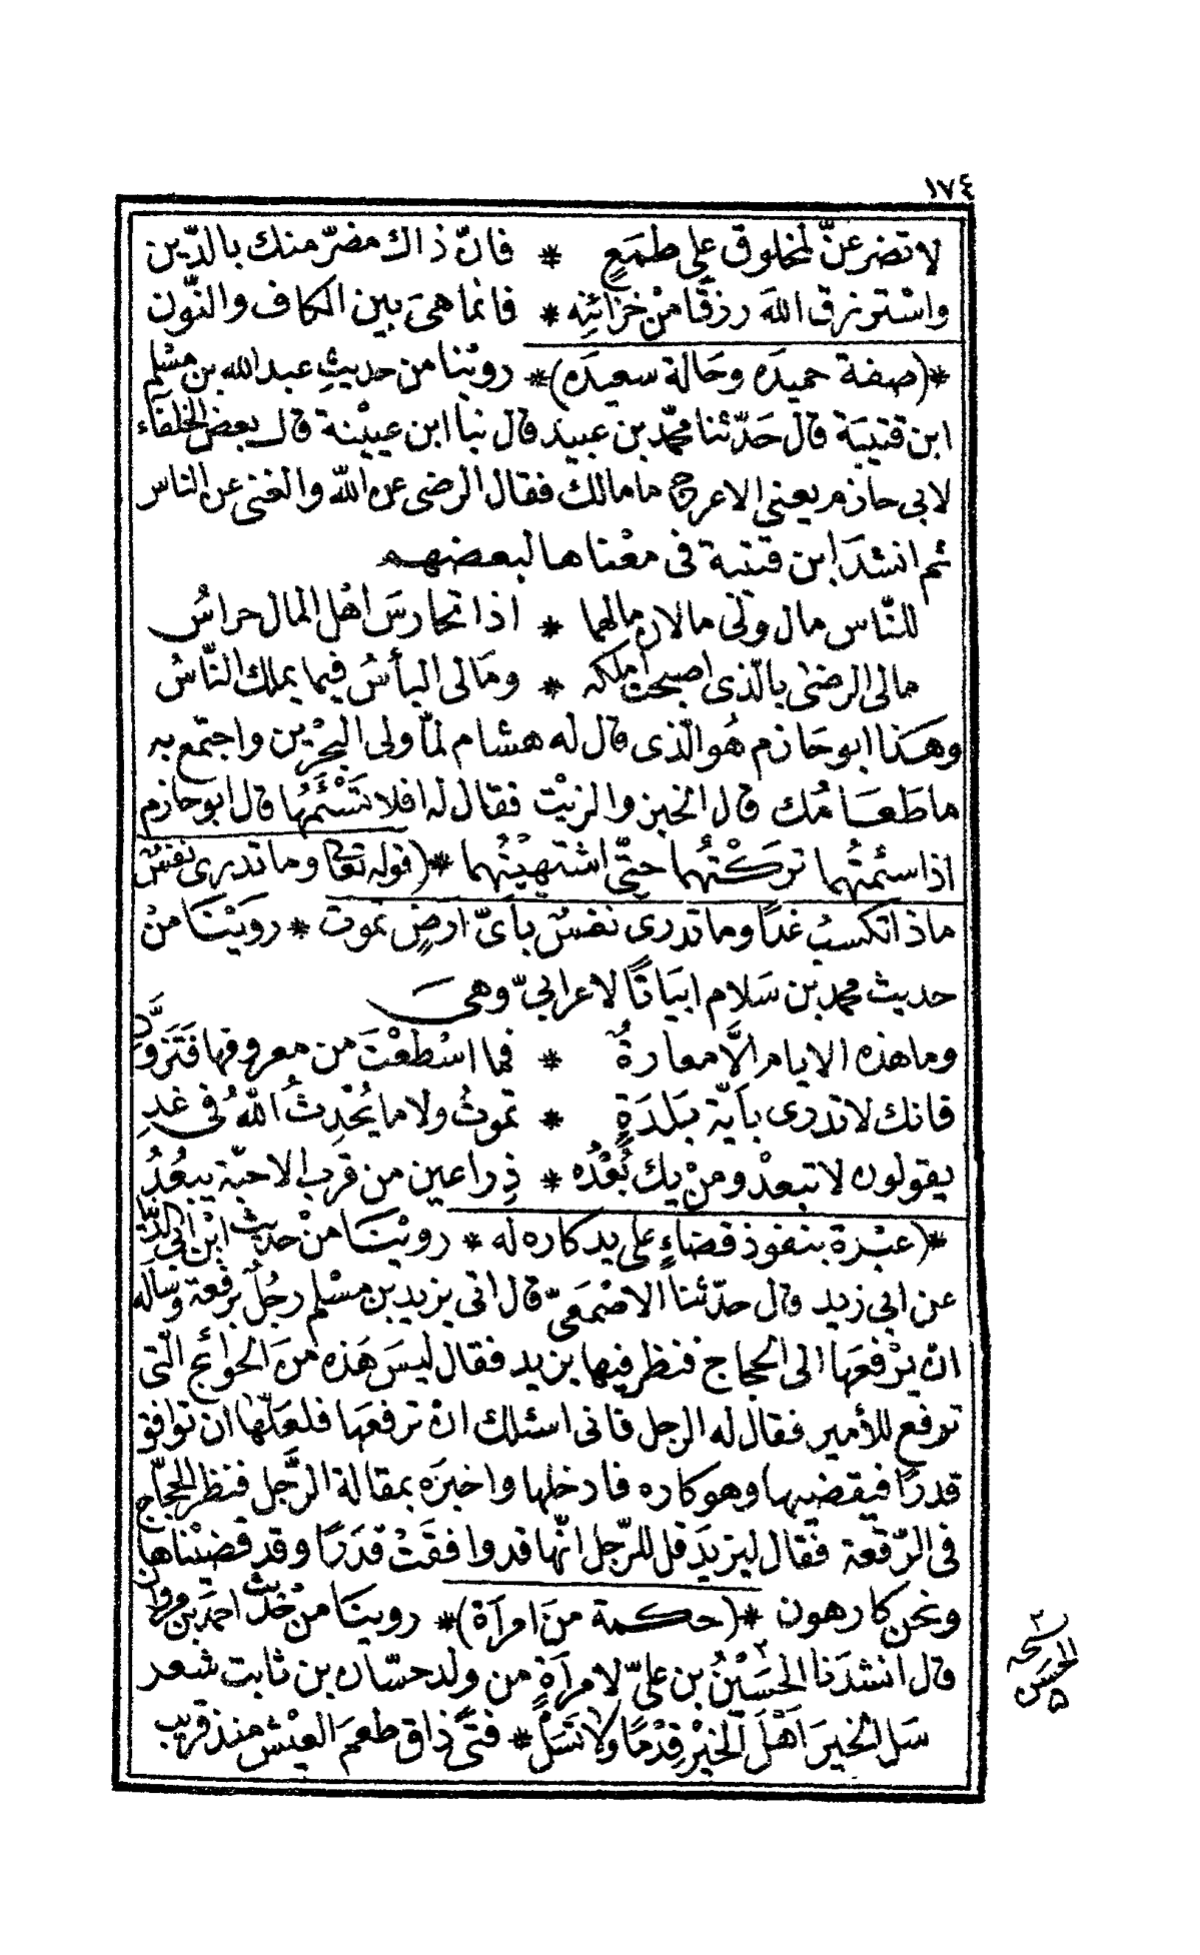 ١٧٤
لا تضرعنّ لمخلوق على طمَعٍ * فانّ ذاك مضرّ منك بالدّين
واسْترزق اللهَ رزقًا منْ خزائنِه * فانما هىَ بين الكاف والنّون
*(صفة حميدَه وحَالة سعيدَه)* روينا من حديثِ عبد الله بن مسْلم
ابن قتيبَة قال حَدّثنا محمّد بن عبيد قال نبا ابن عيينة قال بعض الخلفآء
لابى حازم يعنى الاعرج ما مالك فقال الرضى عن اللّه والغنى عن الناس
ثم انشدَ ابن قتيبة فى معْناها لبعضهم
للنّاس مال ولى مالان مالهما * اذا تحارسَ اهْل المال حراسُ
مالى الرضىٰ بالّذى اصبحت املكه * ومَالى اليأسُ فيما يملك النّاسُ
وهَذا ابو حَازم هُو الّذى قال له هشام لمّا ولى البحْرين واجتمع به
ما طَعَامُك قال الخبز والزيْت فقال له افلا تَسْئَمُها قال ابو حازم
اذا سئمتُهما تركْتُهما حتّى اشتهيْتُهما *(قوله تعالى وما تدرى نفسٌ
ماذا تكسبُ غدًا وما تدرى نفسٌ بأىّ ارضٍ تموت * رويْنَا منْ
حديث محمد بن سَلام ابيَاتًا لاعرابىّ وهى
وما هذه الايام الَّا معارةٌ * فما اسْطعْتَ من معروفها فَتَزوَّد
فانك لا تدرى بأيّة بَلدَةٍ * تموتُ ولا ما يُحْدِثُ اللّهُ فى غدِ
يقولون لا تبعدْ ومنْ يك بُعْدُه * ذِراعين من قرب الاحبّة يبعُدُ
*(عبْرة بنفوذ قضاءٍ على يد كاره له * رويْنَا منْ حديث ابْن ابى الدّنيا
عن ابى زيد قال حدّثنا الاصْمَعىّ قال اتى يزيد بن مسْلم رجُلٌ برقعة وسأله
ان يرْفعَها الى الحجاج فنظر فيها يزيد فقال ليسَ هَذه منَ الحوائج الّتى
ترفع للأمير فقال له الرجل فانى اسئلك انْ ترفعَها فلعَلّها ان توافق
قدرًا فيقضيها وهو كاره فادخلها واخبرَه بمقالة الرَّجل فنظر الحجّاج
فى الرّقعة فقال ليزيدَ قل للرّجل انّها قد وافقَتْ قدَرًا وقد قضيْناها
ونحن كارهون *(حكمة منَ امرآة)* روينَا منْ حديث احمدَ بن مروان
قال انشدَنا الحسَيْنُ بن علىّ لامرآةٍ من ولد حسّان بن ثابت شعر
سَل الخيرَ اَهْلَ الخيْر قِدْمًا ولا تَسَلْ * فتىً ذاق طعمَ العيْش منذ قريب
نسخه
الحسن